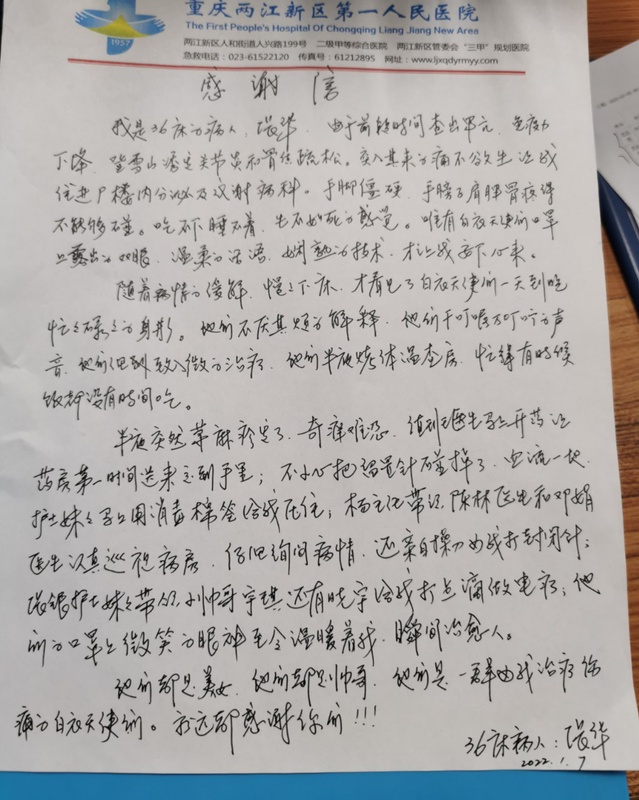 重庆两江新区第一人民医院
The First People's Hospital Of Chongqing Liang Jiang New Area
1957
两江新区人和街道人兴路199号 二级甲等综合医院 两江新区管委会“三甲”规划医院
急救电话：023-61522120 传真号：61212895 网址：www.ljxqdyrmyy.com
感谢信
我是36床的病人，张华，由于前段时间查出甲亢，免疫力
下降，登雪山诱发关节炎和骨质疏松。突如其来的痛不欲生让我
住进P楼内分泌及代谢病科。手脚僵硬，手膀子肩胛骨疼得
不能够碰。吃不下睡不着，生不如死的感觉。唯有白衣天使们口罩
上露出的双眼，温柔的话语，娴熟的技术，才让我安下心来。
随着病情的缓解，慢慢下床，才看见了白衣天使们一天到晚
忙忙碌碌的身影。他们不厌其烦的解释，他们千叮咛万叮咛的声
音，他们细致入微的治疗，他们半夜烤体温查房，忙得有时候
饭都没有时间吃。
半夜突然荨麻疹发了，奇痒难忍，值班医生马上开药让
药房第一时间送来交到手里；不小心把留置针碰掉了，血流一地，
护士妹妹马上用消毒棉签给我压住；杨主任带领陈林医生和邓娟
医生认真巡视病房，仔细询问病情，还亲自操刀为我打封闭针；
张银护士妹妹带的小帅哥宇琪还有晓宇给我打点滴做电疗；他
们的口罩上微笑的眼神至今温暖着我，瞬间治愈人。
他们都是美女，他们都是帅哥，他们是一群为我治疗伤
痛的白衣天使们。永远都感谢你们！！！
36床病人：张华
2022.1.7